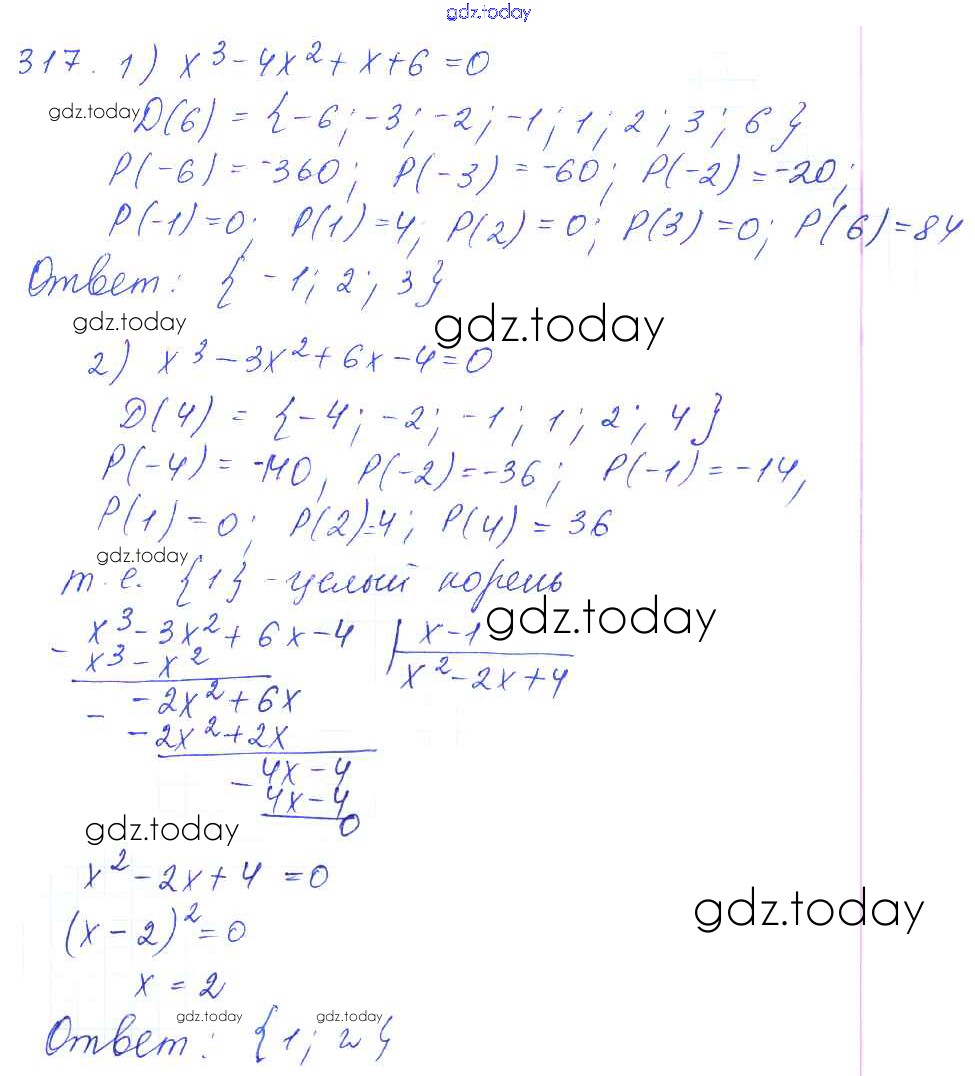 gdz.today
317. 1) x³ - 4x² + x + 6 = 0
gdz.today D(6) = {-6; -3; -2; -1; 1; 2; 3; 6}
P(-6) = -360; P(-3) = -60; P(-2) = -20;
P(-1) = 0; P(1) = 4; P(2) = 0; P(3) = 0; P(6) = 84
Ответ: {-1; 2; 3}
gdz.today gdz.today
2) x³ - 3x² + 6x - 4 = 0
D(4) = {-4; -2; -1; 1; 2; 4}
P(-4) = -140, P(-2) = -36; P(-1) = -14,
P(1) = 0; P(2) = 4; P(4) = 36
gdz.today
т.е. {1} - целый корень
gdz.today
- x³ - 3x² + 6x - 4 | x - 1
x³ - x² x² - 2x + 4
- -2x² + 6x
-2x² + 2x
- 4x - 4
4x - 4
0
gdz.today
x² - 2x + 4 = 0
gdz.today
(x - 2)² = 0
x = 2
gdz.today gdz.today
Ответ: {1; 2}